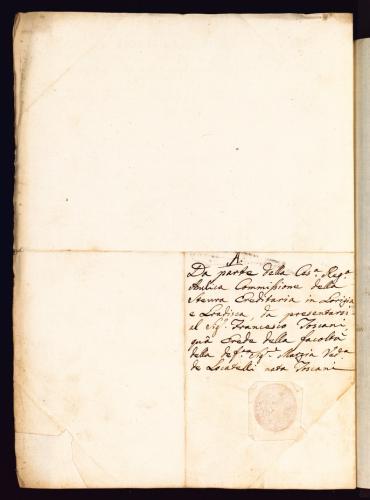 A.
Da parte della Cesa. Rega.
Aulica Commissione della
Steura Ereditaria in Gorizia
e Gradisca, da presentarsi
al Sigr. Francesco Toscani,
quà Erede della facoltà
della defta. Sigra. Marzia Veda.
de Locatelli nata Toscani